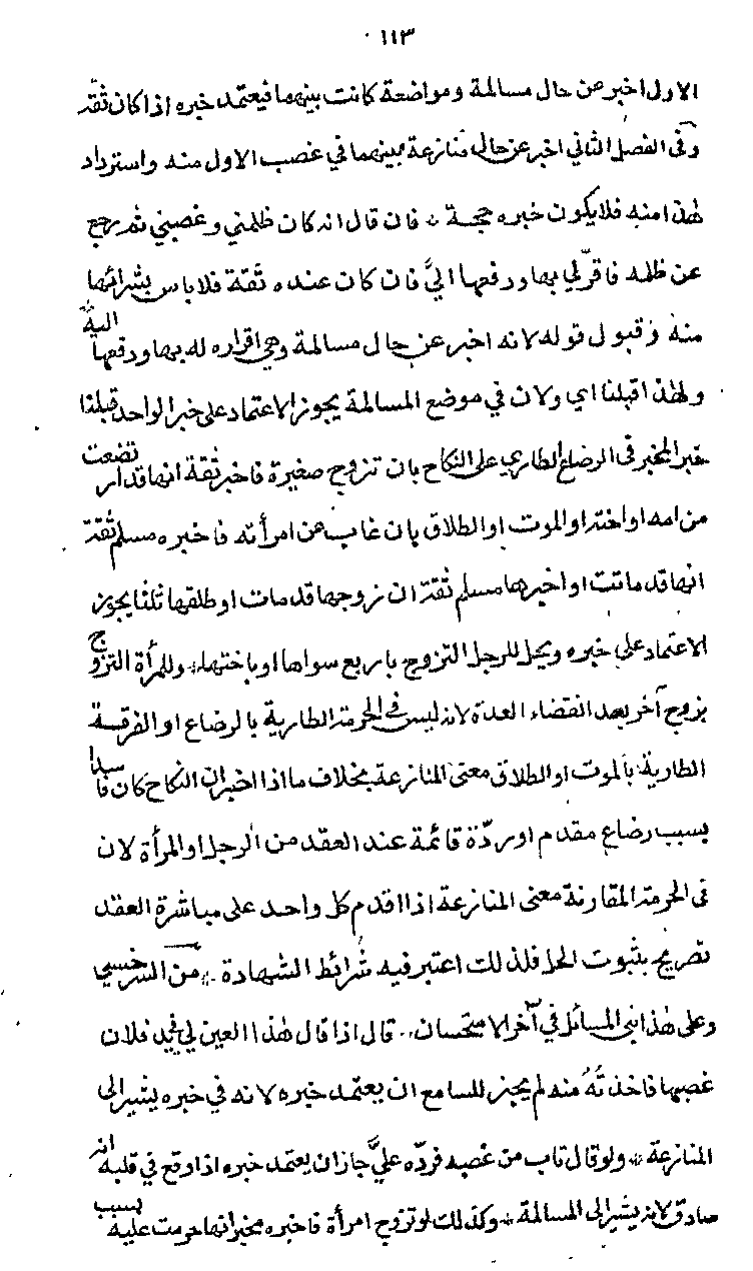 ١١٣
الاول اخبر عن حال مسالمة ومواضعة كانت بينهما فيعتمد خبره اذا كان ثقة
وفى الفصل الثاني اخبر عن حال منازعة بينهما في غصب الاول منه واسترداد
هذا منه فلا يكون خبره حجة * فان قال انه كان ظلمني وغصبني ثم رجع
عن ظلمه فاقرّ لي بها ودفعها اليَّ فان كان عنده ثقة فلا باس بشرائها
منه وقبول قوله لانه اخبر عن حال مسالمة وهي اقراره له بها ودفعها اليه
ولهذا قبلنا اي ولان في موضع المسالمة يجوز الاعتماد على خبر الواحد قبلنا
خبر المخبر فى الرضاع الطاري على النكاح بان تزوج صغيرة فاخبر ثقة انها قد ارتضعت
من امه او اخته او الموت او الطلاق بان غاب عن امرأته فاخبره مسلم ثقة
انها قد ماتت او اخبرها مسلم ثقة ان زوجها قد مات او طلقها ثلثا يجوز
الاعتماد على خبره ويحل للرجل التزوج باربع سواها او باختها * وللمرأة التزوج
بزوج آخر بعد انقضاء العدة لانه ليس في الحرمة الطارية بالرضاع او الفرقة
الطارية بالموت او الطلاق معنى المنازعة بخلاف ما اذا اخبر ان النكاح كان فاسدا
بسبب رضاع مقدم او ردّة قائمة عند العقد من الرجل او المرأة لان
فى الحرمة المقارنة معنى المنازعة اذا اقدم كل واحد على مباشرة العقد
تصريح بثبوت الحل فلذلك اعتبر فيه شرائط الشهادة * من السرخسي
وعلى هذا انبى المسائل في آخر الاستحسان * قال اذا قال هذا العين لي في يد فلان
غصبها فاخذتُهُ منه لم يجز للسامع ان يعتمد خبره لانه في خبره يشير الى
المنازعة * ولو قال تاب من غصبه فردّه عليَّ جاز ان يعتمد خبره اذا وقع في قلبه انه
صادق لانه يشير الى المسالمة * وكذلك لو تزوج امرأة فاخبره مخبر انها حرمت عليه بسبب